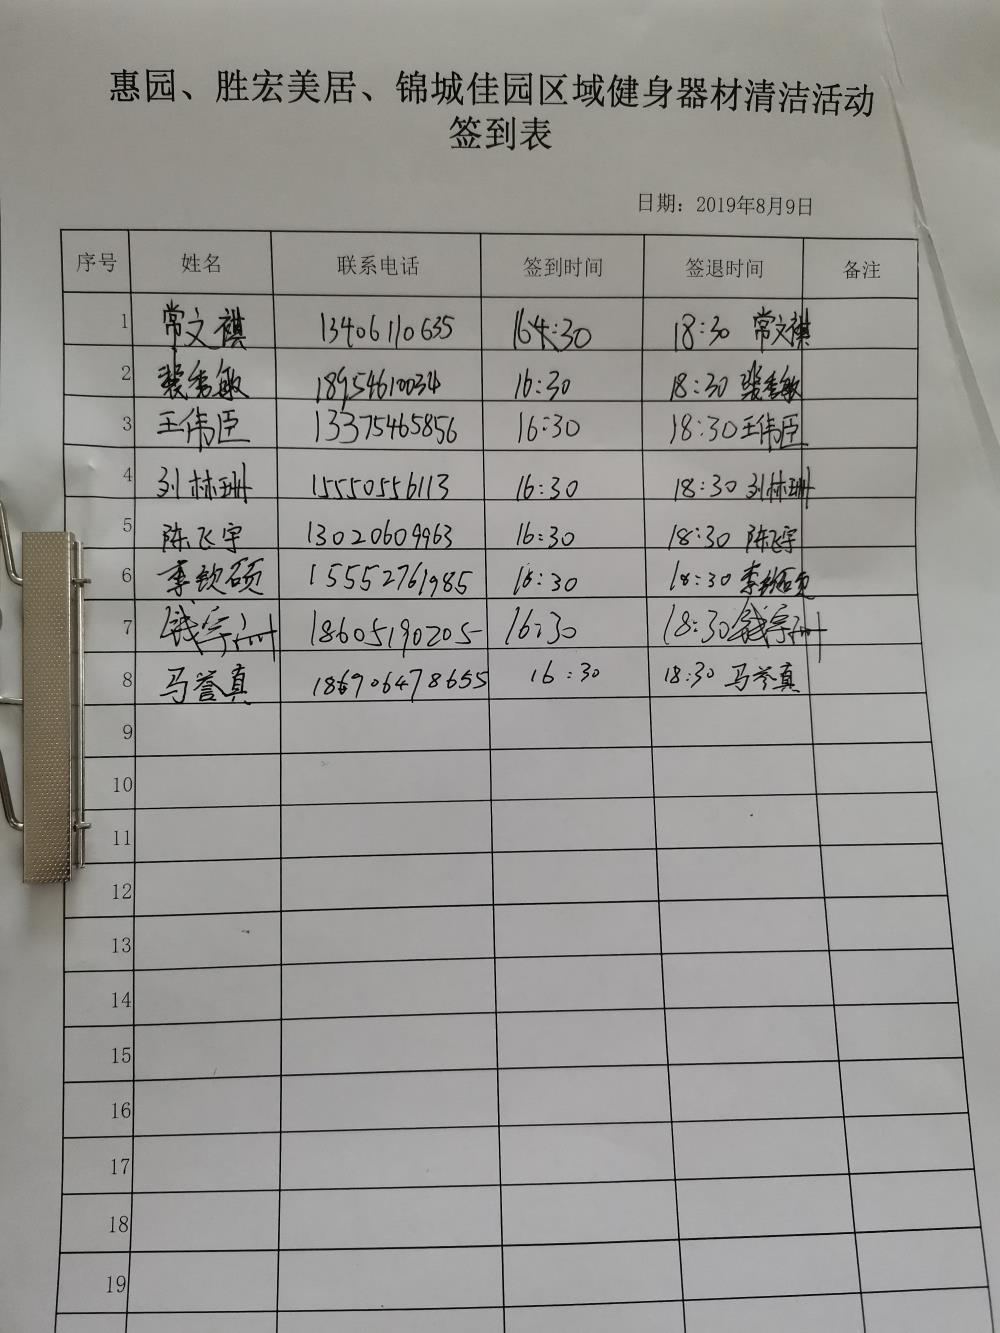 惠园、胜宏美居、锦城佳园区域健身器材清洁活动
签到表
日期：2019年8月9日
序号 姓名 联系电话 签到时间 签退时间 备注
1 常文祺 13406110635 164:30 18:30 常文祺
2 裴秀敏 18954610034 16:30 18:30 裴秀敏
3 王伟臣 13375465856 16:30 18:30 王伟臣
4 刘林珊 15550556113 16:30 18:30 刘林珊
5 陈飞宇 13020609963 16:30 18:30 陈飞宇
6 李钦硕 15552761985 16:30 18:30 李钦硕
7 18605190205 16:30 18:30
8 马誉真 186906478655 16:30 18:30 马誉真
9
10
11
12
13
14
15
16
17
18
19